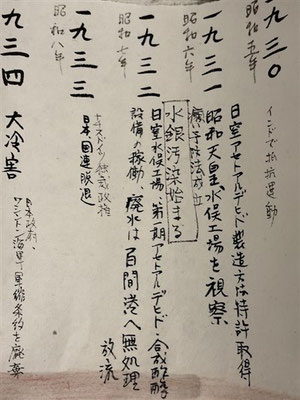 一九三〇
昭和五年
インドで抵抗運動
日窒アセトアルデヒド製造方法特許取得
一九三一
昭和六年
昭和天皇水俣工場を視察
癩予防法成立
水銀汚染始まる
一九三二
昭和七年
日窒水俣工場、第一期アセトアルデヒド・合成酢酸
設備の稼働、廃水は百間港へ無処理
放流
一九三三
昭和八年
独裁政権
日本国連脱退
九三四
大冷害
日本政府、
ワシントン海軍軍縮条約を廃棄